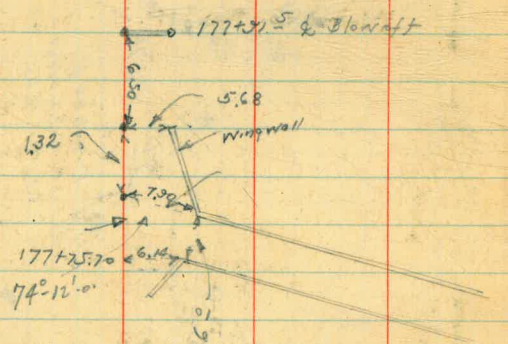 177+91 5 ⅊ Blowoff
6.50
5.68
Wingwall
1.32
7.90
177+75.70
6.14
74°-12'